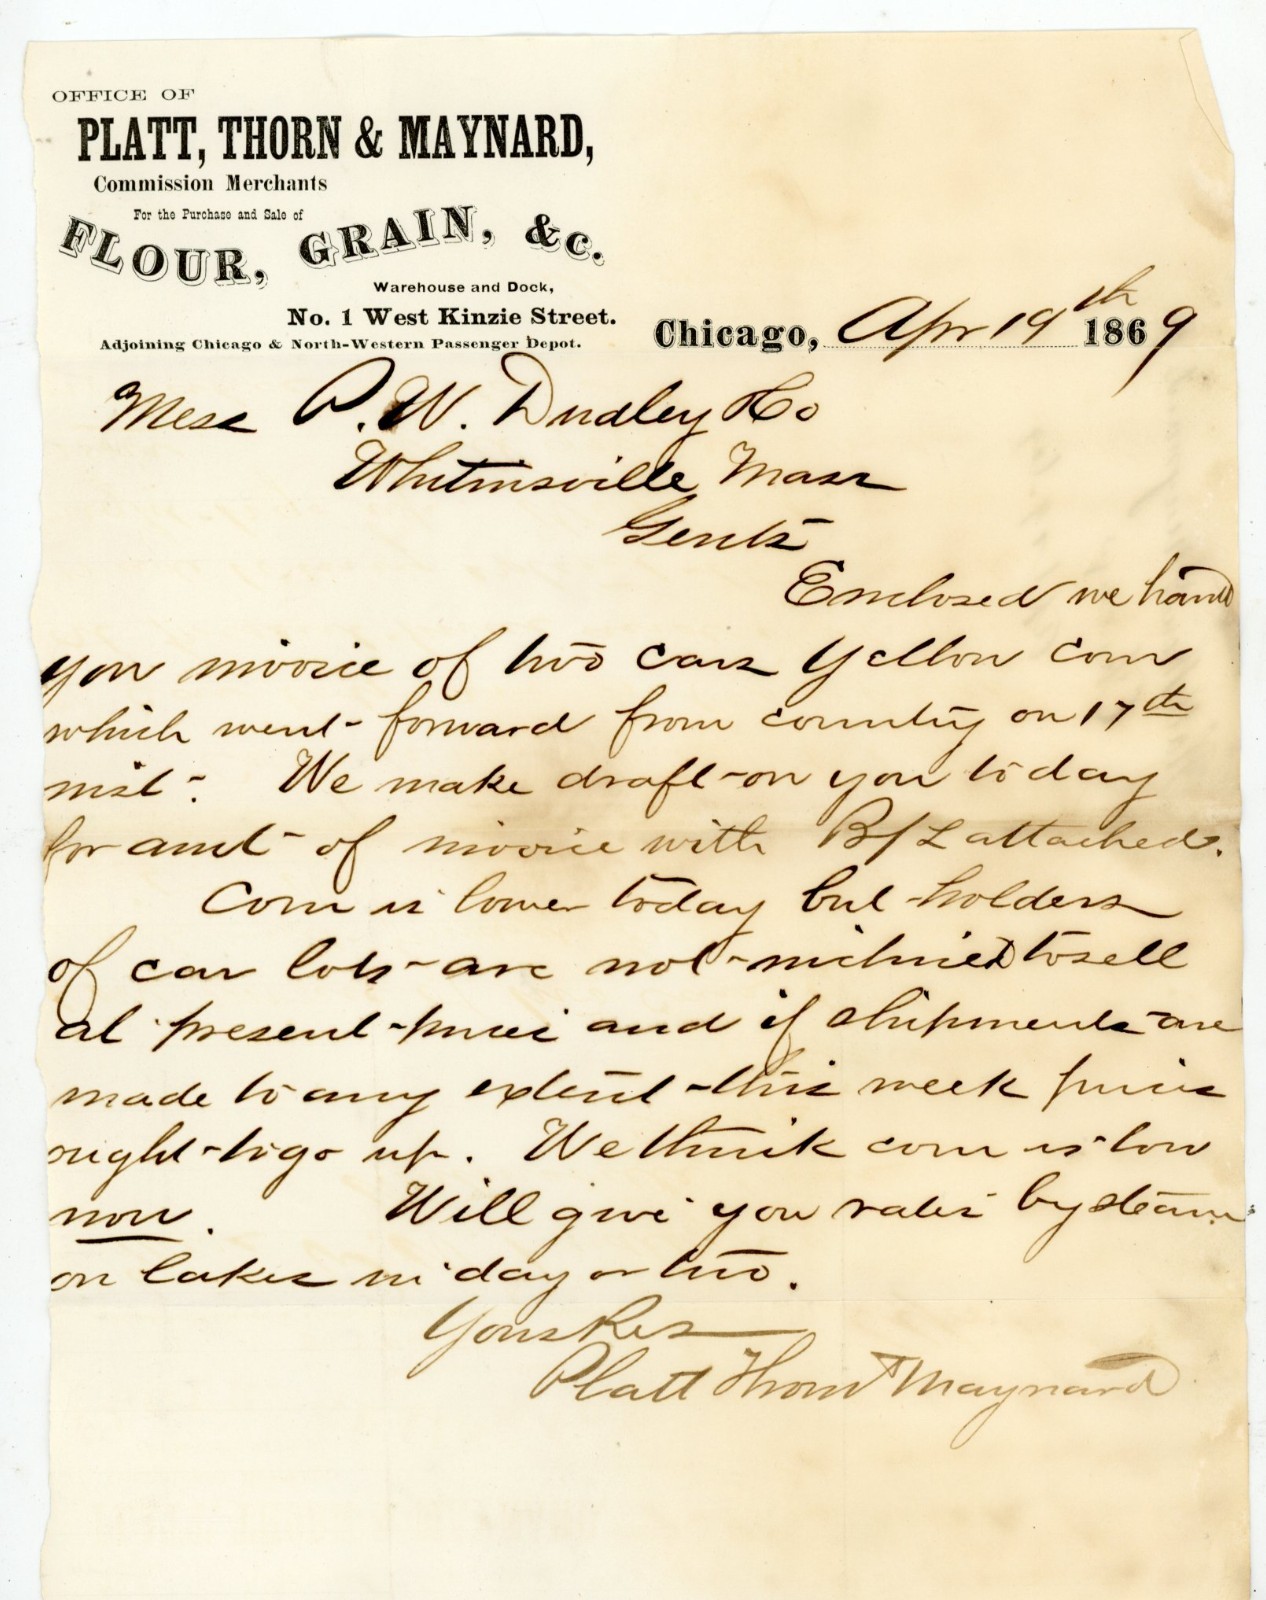 OFFICE OF
PLATT, THORN & MAYNARD,
Commission Merchants
For the Purchase and Sale of
FLOUR, GRAIN, &c.
Warehouse and Dock,
No. 1 West Kinzie Street.
Adjoining Chicago & North-Western Passenger Depot.
Chicago, Apr 19th 1869
Mess P. W. Dudley & Co
Whitinsville Mass
Gents
Enclosed we hand
you invoice of two cars Yellow corn
which went forward from country on 17th
inst. We make draft on you today
for amt of invoice with B/L attached.
Corn is lower today but holders
of car lots are not inclined to sell
at present prices and if shipments are
made to any extent this week prices
ought to go up. We think corn is low
now. Will give you rates by steam
on lakes in day or two.
Yours Res
Platt Thorn & Maynard